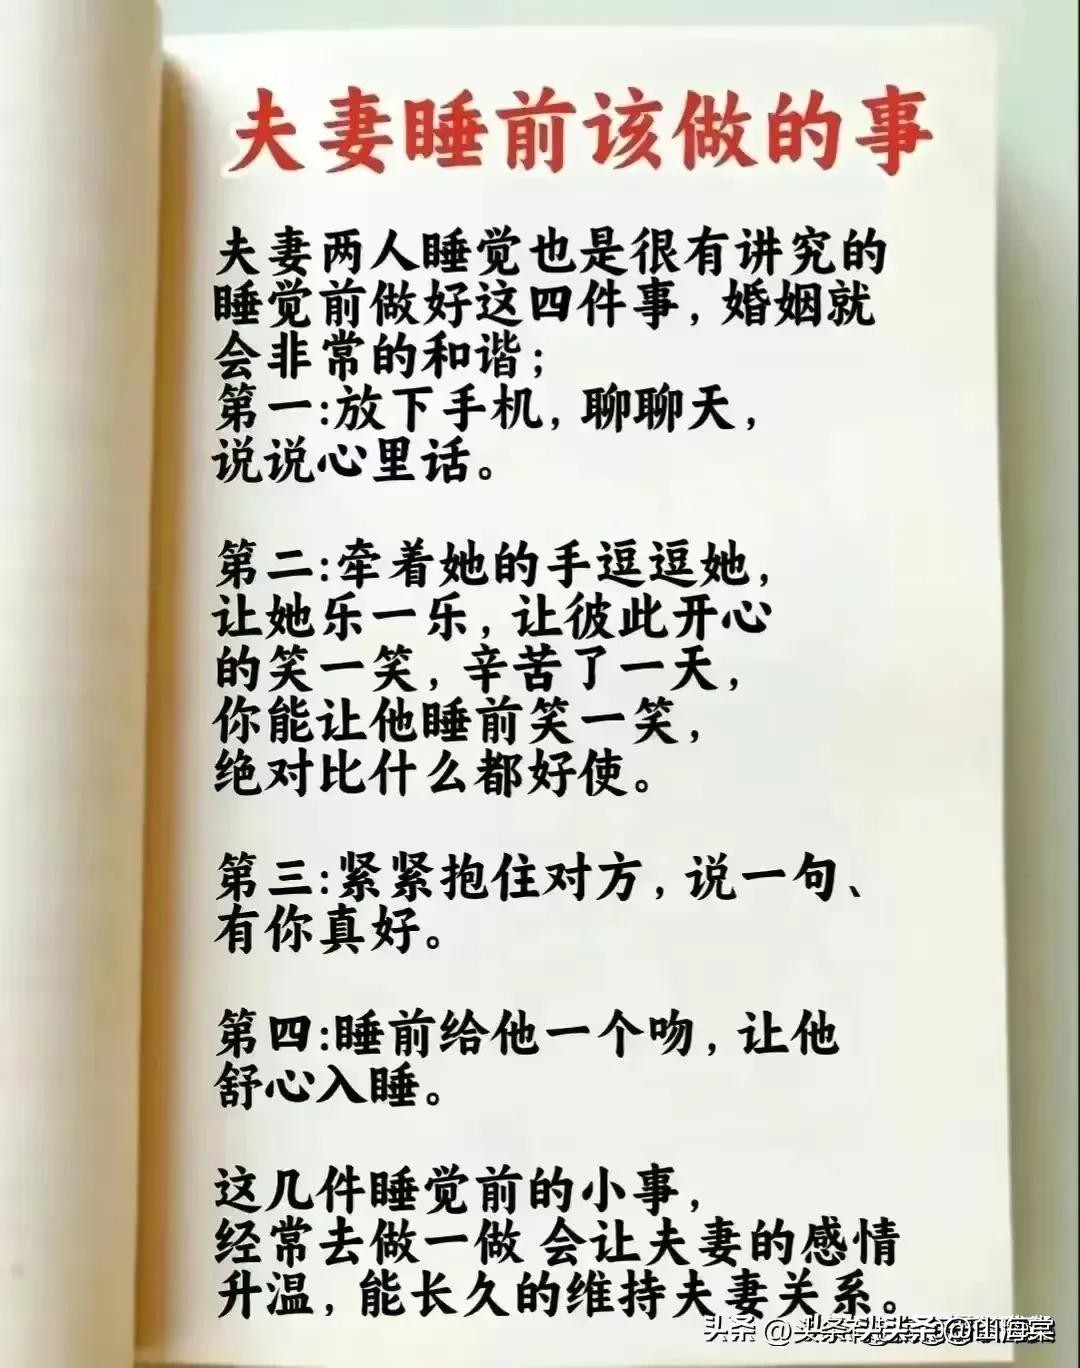 夫妻睡前该做的事
夫妻两人睡觉也是很有讲究的
睡觉前做好这四件事，婚姻就
会非常的和谐；
第一:放下手机，聊聊天，
说说心里话。
第二:牵着她的手逗逗她，
让她乐一乐，让彼此开心
的笑一笑，辛苦了一天，
你能让他睡前笑一笑，
绝对比什么都好使。
第三:紧紧抱住对方，说一句、
有你真好。
第四:睡前给他一个吻，让他
舒心入睡。
这几件睡觉前的小事，
经常去做一做 会让夫妻的感情
升温，能长久的维持夫妻关系。
头条 @